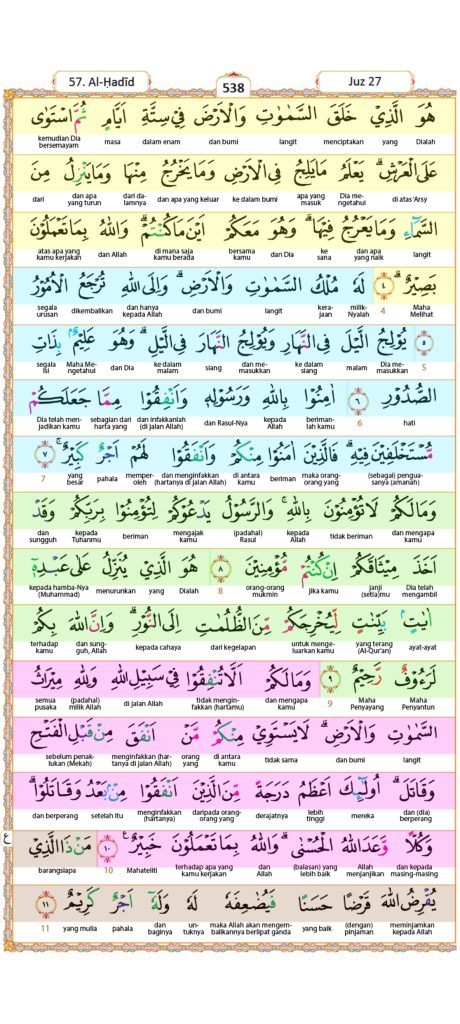 57. Al-Ḥadīd
538
Juz 27
هُوَ الَّذِيْ خَلَقَ السَّمٰوٰتِ وَالْاَرْضَ فِيْ سِتَّةِ اَيَّامٍ ثُمَّ اسْتَوٰى
Dialah yang menciptakan langit dan bumi dalam enam masa kemudian Dia bersemayam
عَلَى الْعَرْشِۗ يَعْلَمُ مَا يَلِجُ فِى الْاَرْضِ وَمَا يَخْرُجُ مِنْهَا وَمَا يَنْزِلُ مِنَ
di atas 'Arsy Dia me-ngetahui apa yang masuk ke dalam bumi dan apa yang keluar dari da-lamnya dan apa yang turun dari
السَّمَاۤءِ وَمَا يَعْرُجُ فِيْهَاۗ وَهُوَ مَعَكُمْ اَيْنَ مَا كُنْتُمْۗ وَاللّٰهُ بِمَا تَعْمَلُوْنَ
langit dan apa yang naik ke sana dan Dia bersama kamu di mana saja kamu berada dan Allah atas apa yang kamu kerjakan
بَصِيْرٌۗ ٤ لَهٗ مُلْكُ السَّمٰوٰتِ وَالْاَرْضِۗ وَاِلَى اللّٰهِ تُرْجَعُ الْاُمُوْرُ
Maha Melihat 4 milik-Nyalah kera-jaan langit dan bumi dan hanya kepada Allah dikembalikan segala urusan
٥ يُوْلِجُ الَّيْلَ فِى النَّهَارِ وَيُوْلِجُ النَّهَارَ فِى الَّيْلِۗ وَهُوَ عَلِيْمٌۢ بِذَاتِ
5 Dia me-masukkan malam ke dalam siang dan me-masukkan siang ke dalam malam dan Dia Maha Me-ngetahui segala isi
الصُّدُوْرِ ٦ اٰمِنُوْا بِاللّٰهِ وَرَسُوْلِهٖ وَاَنْفِقُوْا مِمَّا جَعَلَكُمْ
hati 6 beriman-lah kamu kepada Allah dan Rasul-Nya dan infakkanlah (di jalan Allah) sebagian dari harta yang Dia telah men-jadikan kamu
مُّسْتَخْلَفِيْنَ فِيْهِۗ فَالَّذِيْنَ اٰمَنُوْا مِنْكُمْ وَاَنْفَقُوْا لَهُمْ اَجْرٌ كَبِيْرٌۚ ٧
(sebagai) pengua-sanya (amanah) maka orang-orang yang beriman di antara kamu dan menginfakkan (hartanya di jalan Allah) memper-oleh pahala yang besar 7
وَمَا لَكُمْ لَا تُؤْمِنُوْنَ بِاللّٰهِۚ وَالرَّسُوْلُ يَدْعُوْكُمْ لِتُؤْمِنُوْا بِرَبِّكُمْ وَقَدْ
dan mengapa kamu tidak beriman kepada Allah (padahal) Rasul mengajak kamu beriman kepada Tuhanmu dan sungguh
اَخَذَ مِيْثَاقَكُمْ اِنْ كُنْتُمْ مُّؤْمِنِيْنَ ٨ هُوَ الَّذِيْ يُنَزِّلُ عَلٰى عَبْدِهٖٓ
Dia telah mengambil janji (setia)mu jika kamu orang-orang mukmin 8 Dialah yang menurunkan kepada hamba-Nya (Muhammad)
اٰيٰتٍۢ بَيِّنٰتٍ لِّيُخْرِجَكُمْ مِّنَ الظُّلُمٰتِ اِلَى النُّوْرِۗ وَاِنَّ اللّٰهَ بِكُمْ
ayat-ayat yang terang (Al-Qur'an) untuk menge-luarkan kamu dari kegelapan kepada cahaya dan sung-guh, Allah terhadap kamu
لَرَءُوْفٌ رَّحِيْمٌ ٩ وَمَا لَكُمْ اَلَّا تُنْفِقُوْا فِيْ سَبِيْلِ اللّٰهِ وَلِلّٰهِ مِيْرَاثُ
Maha Penyantun Maha Penyayang 9 dan mengapa kamu tidak mengin-fakkan (hartamu) di jalan Allah (padahal) milik Allah semua pusaka
السَّمٰوٰتِ وَالْاَرْضِۗ لَا يَسْتَوِيْ مِنْكُمْ مَّنْ اَنْفَقَ مِنْ قَبْلِ الْفَتْحِ
langit dan bumi tidak sama di antara kamu orang yang menginfakkan (har-tanya di jalan Allah) sebelum penak-lukan (Mekah)
وَقَاتَلَۗ اُولٰۤىِٕكَ اَعْظَمُ دَرَجَةً مِّنَ الَّذِيْنَ اَنْفَقُوْا مِنْۢ بَعْدُ وَقَاتَلُوْاۗ
dan (dia) berperang mereka lebih tinggi derajatnya daripada orang-orang yang menginfakkan (hartanya) setelah itu dan berperang
ع
وَكُلًّا وَّعَدَ اللّٰهُ الْحُسْنٰىۗ وَاللّٰهُ بِمَا تَعْمَلُوْنَ خَبِيْرٌ ١٠ مَنْ ذَا الَّذِيْ
dan kepada masing-masing Allah menjanjikan (balasan) yang lebih baik dan Allah terhadap apa yang kamu kerjakan Mahateliti 10 barangsiapa
يُقْرِضُ اللّٰهَ قَرْضًا حَسَنًا فَيُضٰعِفَهٗ لَهٗ وَلَهٗٓ اَجْرٌ كَرِيْمٌ ١١
meminjamkan kepada Allah (dengan) pinjaman yang baik maka Allah akan mengem-balikannya berlipat ganda un-tuknya dan baginya pahala yang mulia 11